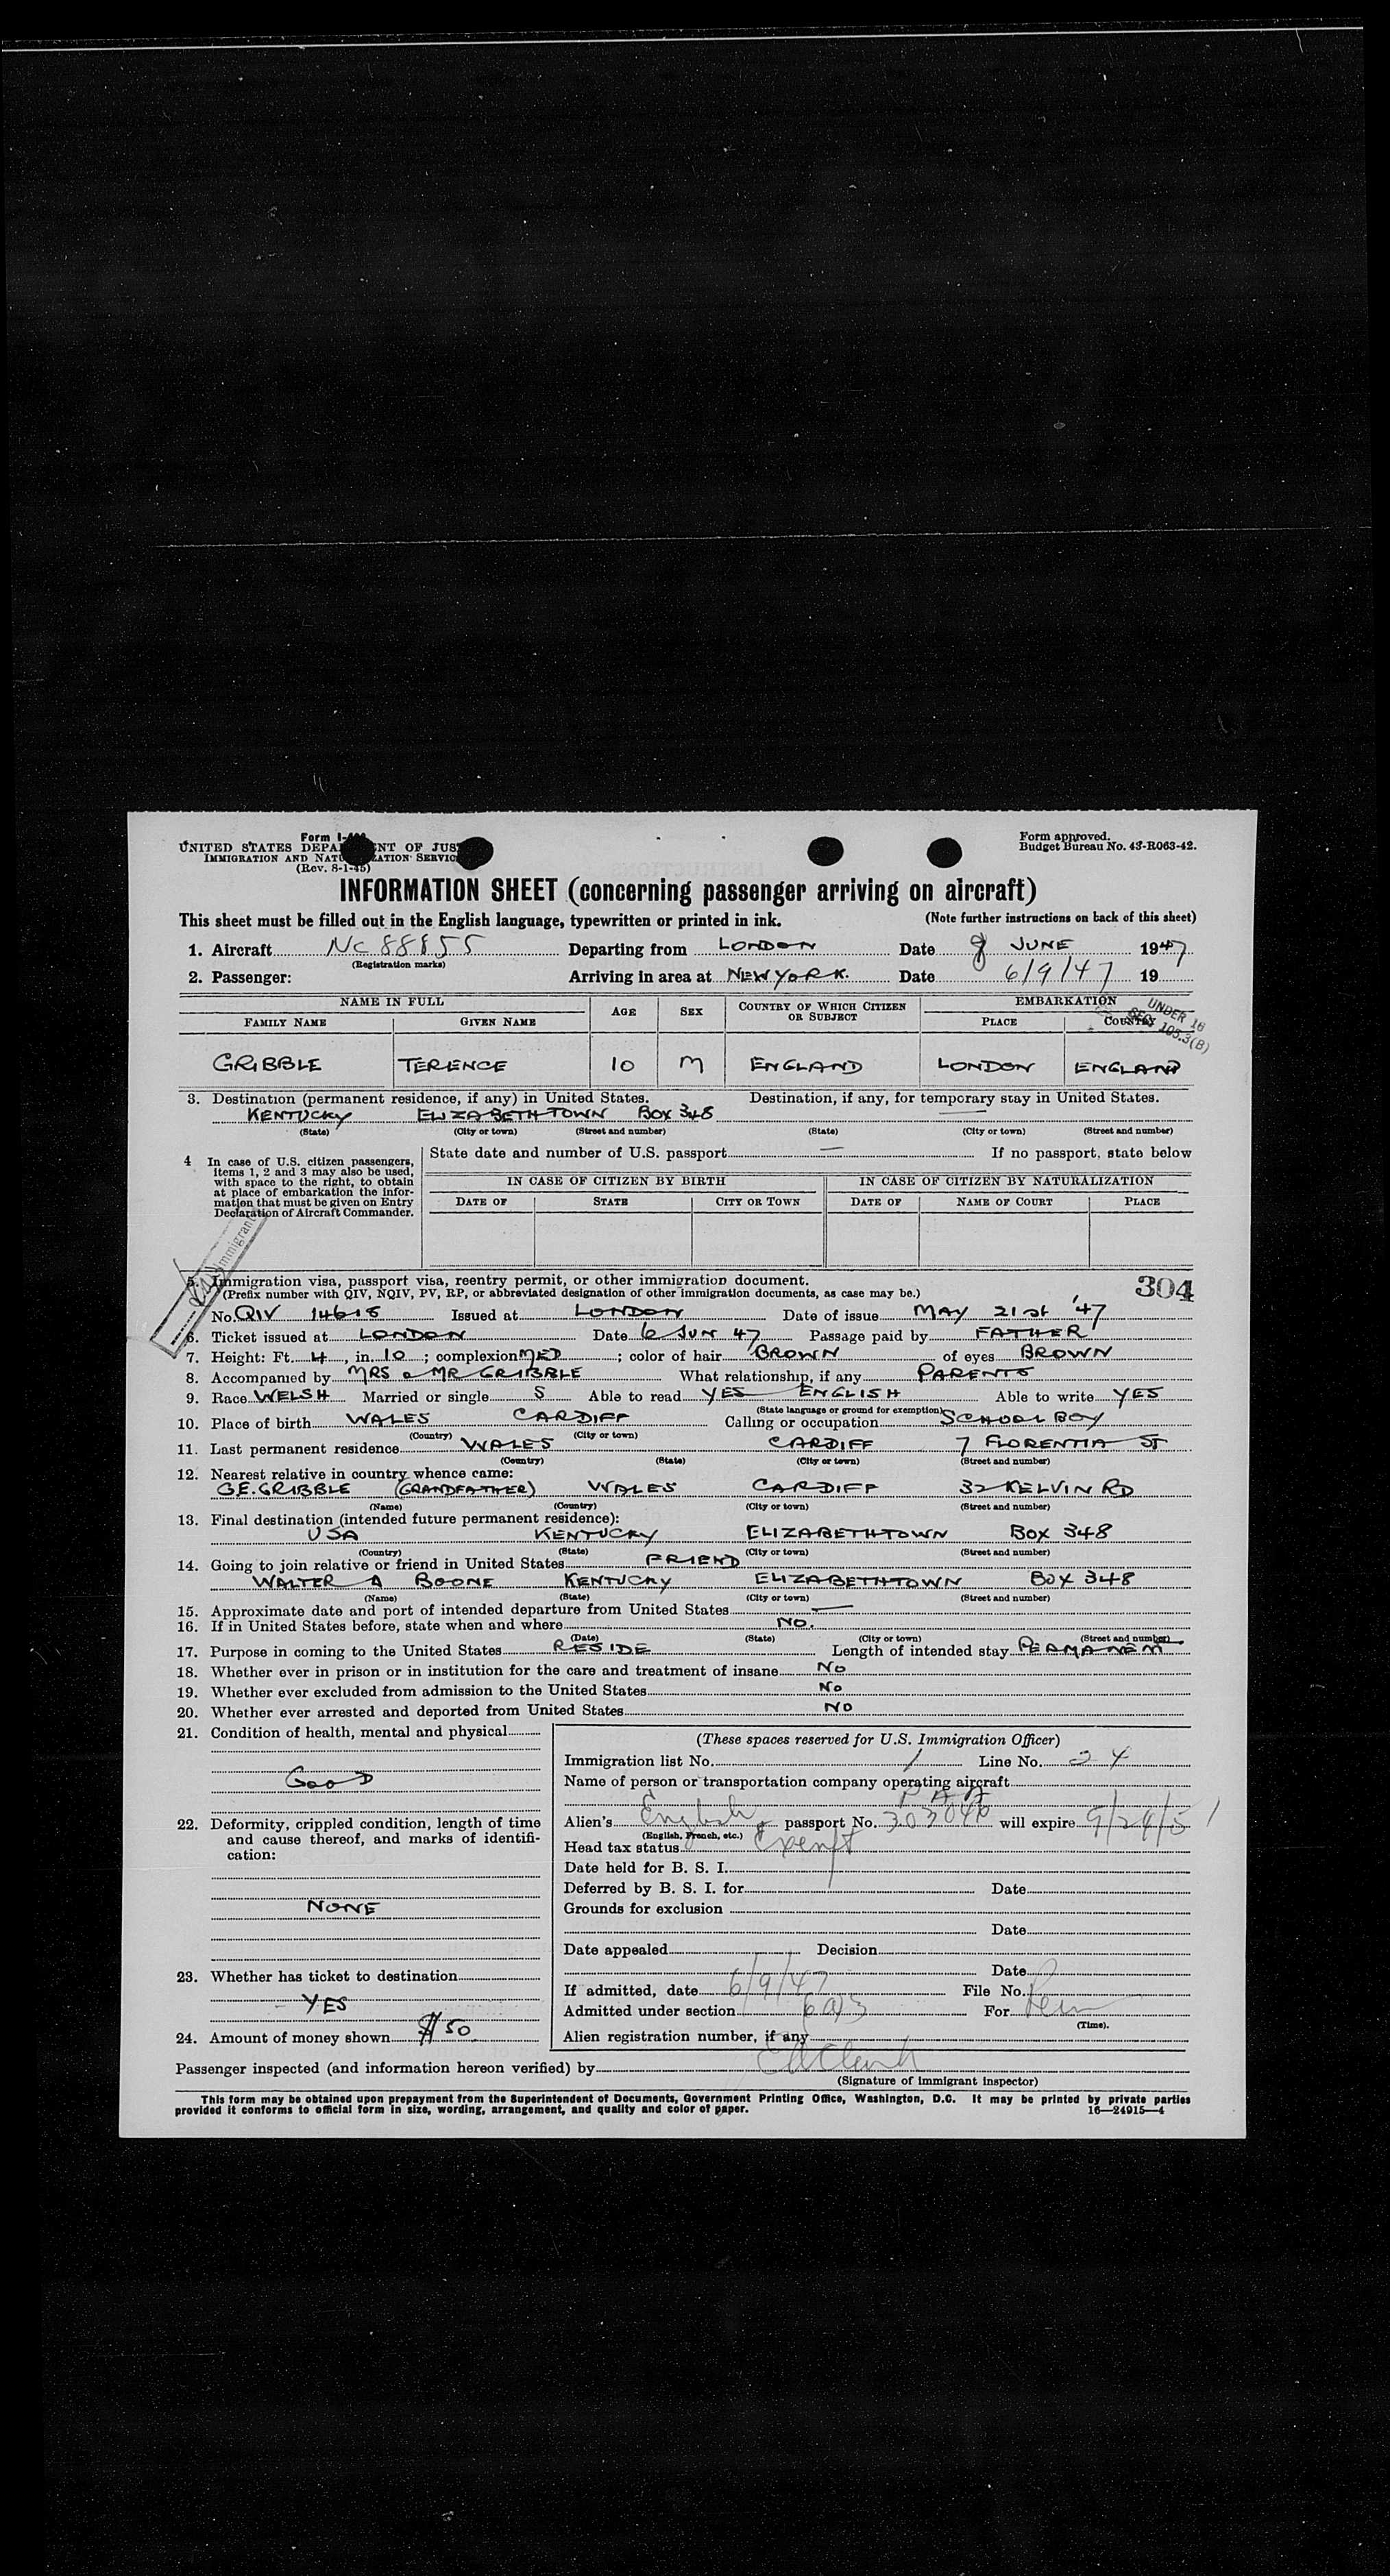 Form I-
UNITED STATES DEPA NT OF JUS
IMMIGRATION AND NATU ZATION SERVIC
(Rev. 8-1-45)
Form approved.
Budget Bureau No. 43-R063-42.
INFORMATION SHEET (concerning passenger arriving on aircraft)
This sheet must be filled out in the English language, typewritten or printed in ink. (Note further instructions on back of this sheet)
1. Aircraft NC 88855 Departing from LONDON Date 8 JUNE 1947
(Registration marks)
2. Passenger: Arriving in area at NEW YORK. Date 6/9/47 19
NAME IN FULL AGE SEX COUNTRY OF WHICH CITIZEN OR SUBJECT EMBARKATION
FAMILY NAME GIVEN NAME PLACE COUNTRY
UNDER 16
SEC. 105.3(B)
GRIBBLE TERENCE 10 M ENGLAND LONDON ENGLAND
3. Destination (permanent residence, if any) in United States. Destination, if any, for temporary stay in United States.
KENTUCKY ELIZABETHTOWN BOX 348 —
(State) (City or town) (Street and number) (State) (City or town) (Street and number)
4 In case of U.S. citizen passengers, items 1, 2 and 3 may also be used, with space to the right, to obtain at place of embarkation the information that must be given on Entry Declaration of Aircraft Commander.
State date and number of U.S. passport — If no passport, state below
IN CASE OF CITIZEN BY BIRTH IN CASE OF CITIZEN BY NATURALIZATION
DATE OF STATE CITY OR TOWN DATE OF NAME OF COURT PLACE
Immigrant
5. Immigration visa, passport visa, reentry permit, or other immigration document. 304
(Prefix number with QIV, NQIV, PV, RP, or abbreviated designation of other immigration documents, as case may be.)
No. QIV 14618 Issued at LONDON Date of issue MAY 21st '47
6. Ticket issued at LONDON Date 6 JUN 47 Passage paid by FATHER
7. Height: Ft. 4, in. 10; complexion MED; color of hair BROWN of eyes BROWN
8. Accompanied by MRS & MR GRIBBLE What relationship, if any PARENTS
9. Race WELSH Married or single S Able to read YES ENGLISH Able to write YES
(State language or ground for exemption)
10. Place of birth WALES CARDIFF Calling or occupation SCHOOL BOY
(Country) (City or town)
11. Last permanent residence WALES CARDIFF 7 FLORENTIA ST
(Country) (State) (City or town) (Street and number)
12. Nearest relative in country whence came:
G.E. GRIBBLE (GRANDFATHER) WALES CARDIFF 32 KELVIN RD
(Name) (Country) (City or town) (Street and number)
13. Final destination (intended future permanent residence):
USA KENTUCKY ELIZABETHTOWN BOX 348
(Country) (State) (City or town) (Street and number)
14. Going to join relative or friend in United States FRIEND
WALTER A BOONE KENTUCKY ELIZABETHTOWN BOX 348
(Name) (State) (City or town) (Street and number)
15. Approximate date and port of intended departure from United States —
16. If in United States before, state when and where NO.
(Date) (State) (City or town) (Street and number)
17. Purpose in coming to the United States RESIDE Length of intended stay PERMANENT
18. Whether ever in prison or in institution for the care and treatment of insane NO
19. Whether ever excluded from admission to the United States NO
20. Whether ever arrested and deported from United States NO
21. Condition of health, mental and physical
GOOD
22. Deformity, crippled condition, length of time and cause thereof, and marks of identification:
NONE
23. Whether has ticket to destination
YES
24. Amount of money shown $50
(These spaces reserved for U.S. Immigration Officer)
Immigration list No. 1 Line No. 24
Name of person or transportation company operating aircraft
PAA
Alien's English passport No. 303046 will expire 9/24/51
(English, French, etc.)
Head tax status Exempt
Date held for B. S. I.
Deferred by B. S. I. for Date
Grounds for exclusion
Date
Date appealed Decision
Date
If admitted, date 6/9/47 File No.
Admitted under section 6(a)3 For Perm
(Time).
Alien registration number, if any
Passenger inspected (and information hereon verified) by
(Signature of immigrant inspector)
This form may be obtained upon prepayment from the Superintendent of Documents, Government Printing Office, Washington, D.C. It may be printed by private parties
provided it conforms to official form in size, wording, arrangement, and quality and color of paper. 16—24915—4